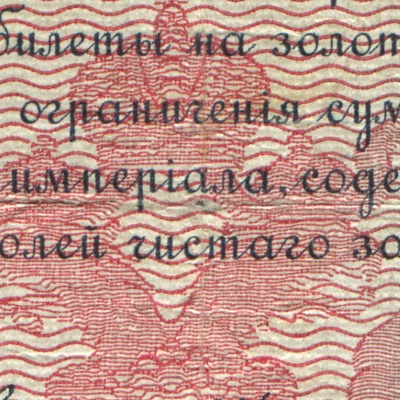 билеты на золот
ограниченія сум
имперіала, соде
олей чистаго зо